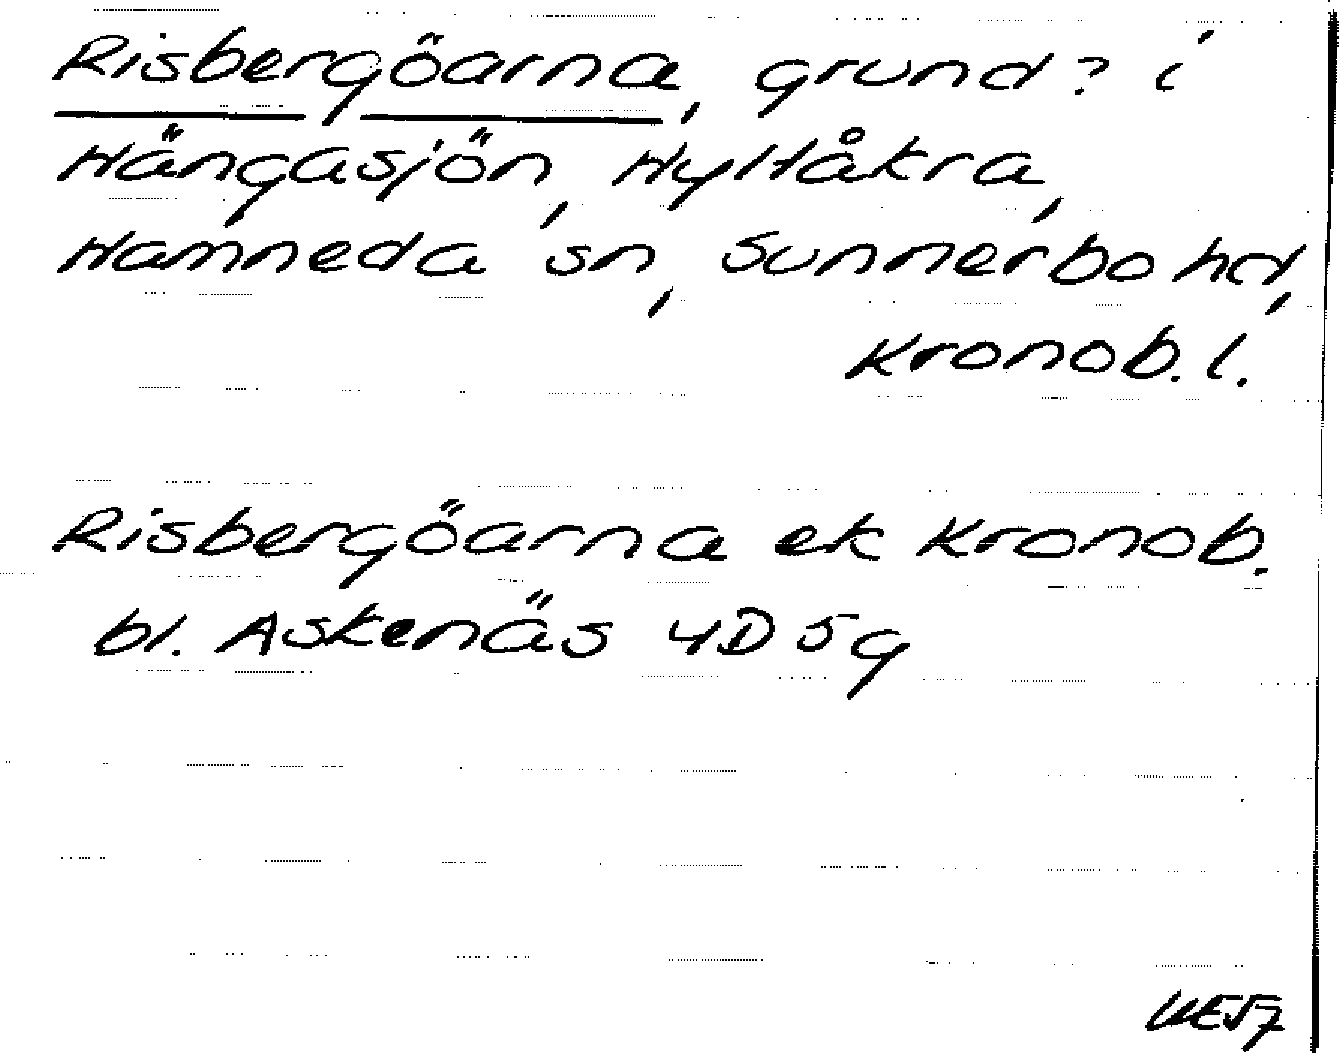 Risbergöarna, grund? i
Hängasjön, Hyltåkra,
Hamneda sn, Sunnerbo hd,
Kronob. l.
Risbergöarna ek Kronob.
bl. Askenäs 4D 5g